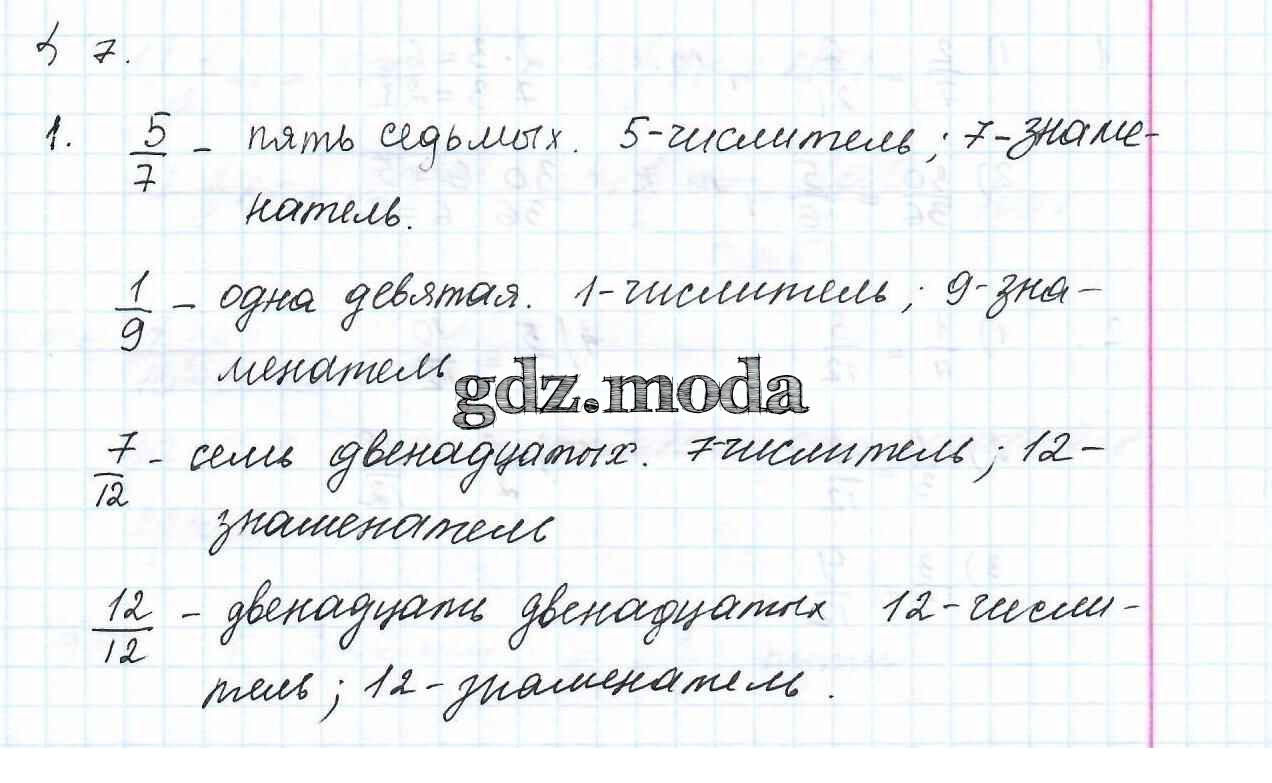 § 7.
1. 5/7 - пять седьмых. 5-числитель; 7-знаме-
натель.
1/9 - одна девятая. 1-числитель; 9-зна-
менатель
gdz.moda
7/12 - семь двенадцатых. 7-числитель; 12-
знаменатель
12/12 - двенадцать двенадцатых 12-числи-
тель; 12-знаменатель.